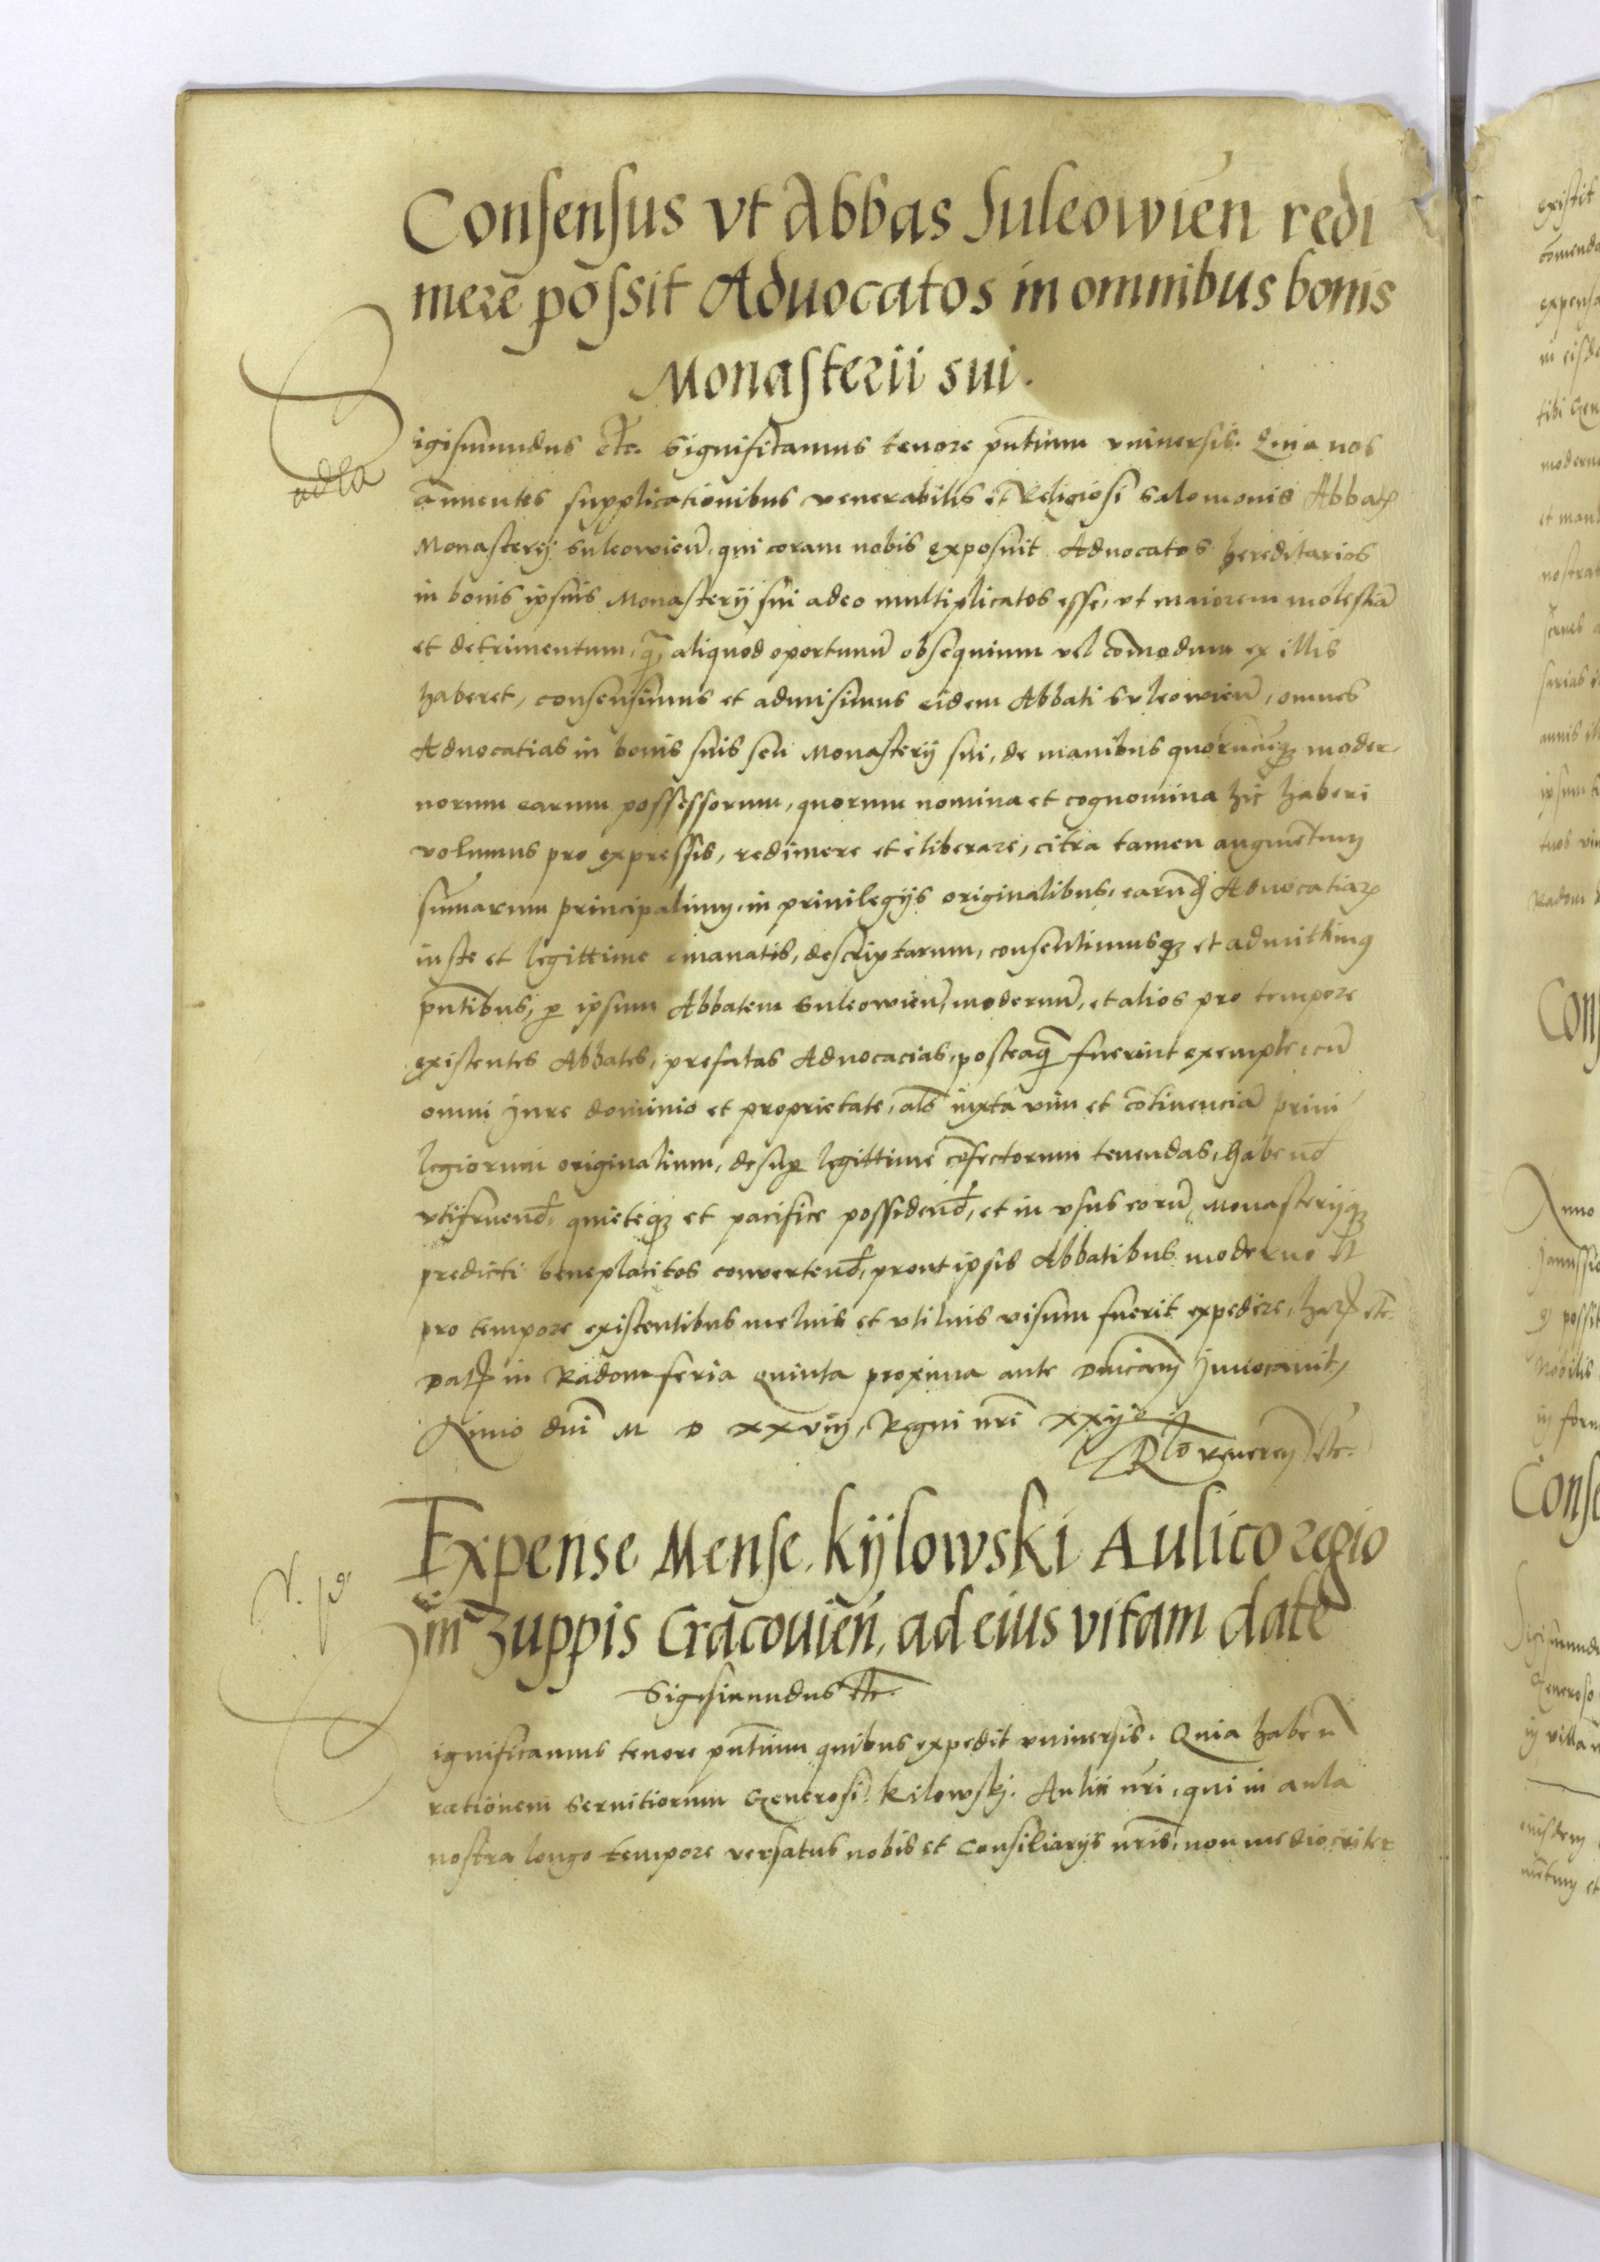 Consensus vt Abbas Suleowien redi
mere possit Aduocatos in omnibus bonis
Monasterii sui.
Sigismundus etc. Significamus tenore pntium vniuersis. Quia nos
adla
annuentes supplicationibus venerabilis et Religiosi Salomonis Abbat
Monasterij Suleowien, qui coram nobis exposuit Aduocatos hereditarios
in bonis ipsius Monasterij sui adeo multiplicatos esse, vt maiorem molestia
et detrimentum, qz aliquod oportunu obsequium vel comodum ex illis
haberet, consensimus et admisimus eidem Abbati Suleowien, omnes
Aduocatias in bonis suis seu Monasterij sui, de manibus quorucuqz moder
norum earum possessorum, quorum nomina et cognomina hic haberi
volumus pro expressis, redimere et eliberare, citra tamen augmetum
sumarum principalium, in priuilegijs originalibus, earund Aduocatiar
iuste et legittime emanatis, descriptarum, consentimusqz et admittimus
pntibus, p ipsum Abbatem Suleowien, modernu, et alios pro tempore
existentes Abbates, prefatas Aduocacias, posteaq fuerint exempte, cu
omni Jure dominio et proprietate, als iuxta vim et cotinencia priui
legiorum originalium, desup legittime cofectorum tenendas, habend
vtifruend, quieteqz et pacifice possidend, et in vsus eoru, Monasterijqz
predicti beneplacitos conuertend, prout ipsis Abbatibus moderno et
pro tempore existentibus melius et vtilius visum fuerit expedire, har etc.
Dat in Radom feria quinta proxima ante Dnicam Inuocauit,
Anno dni M D xxviij, Regni nri xxij
Rlo Reueren etc.
Expense Mense Kÿlowski Aulico regio
in Zuppis Cracouien, ad eius vitam date
v. p
Sigismundus etc.
Significamus tenore pntium quibus expedit vniuersis. Quia haben
rationem Seruitiorum Generosi Kilowskj. Aulici nri, qui in aula
nostra longo tempore versatus nobis et Consiliarijs nris, non mediocriter